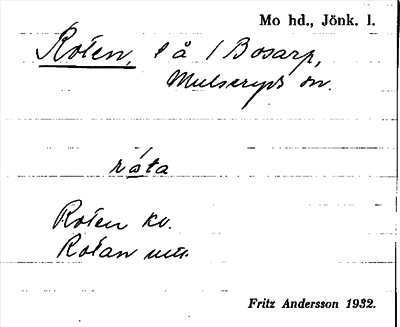 Mo hd., Jönk. l.
Roten, l å / Bosarp,
Mulseryds sn.
råta
Roten kv.
Rotan utt.
Fritz Andersson 1932.